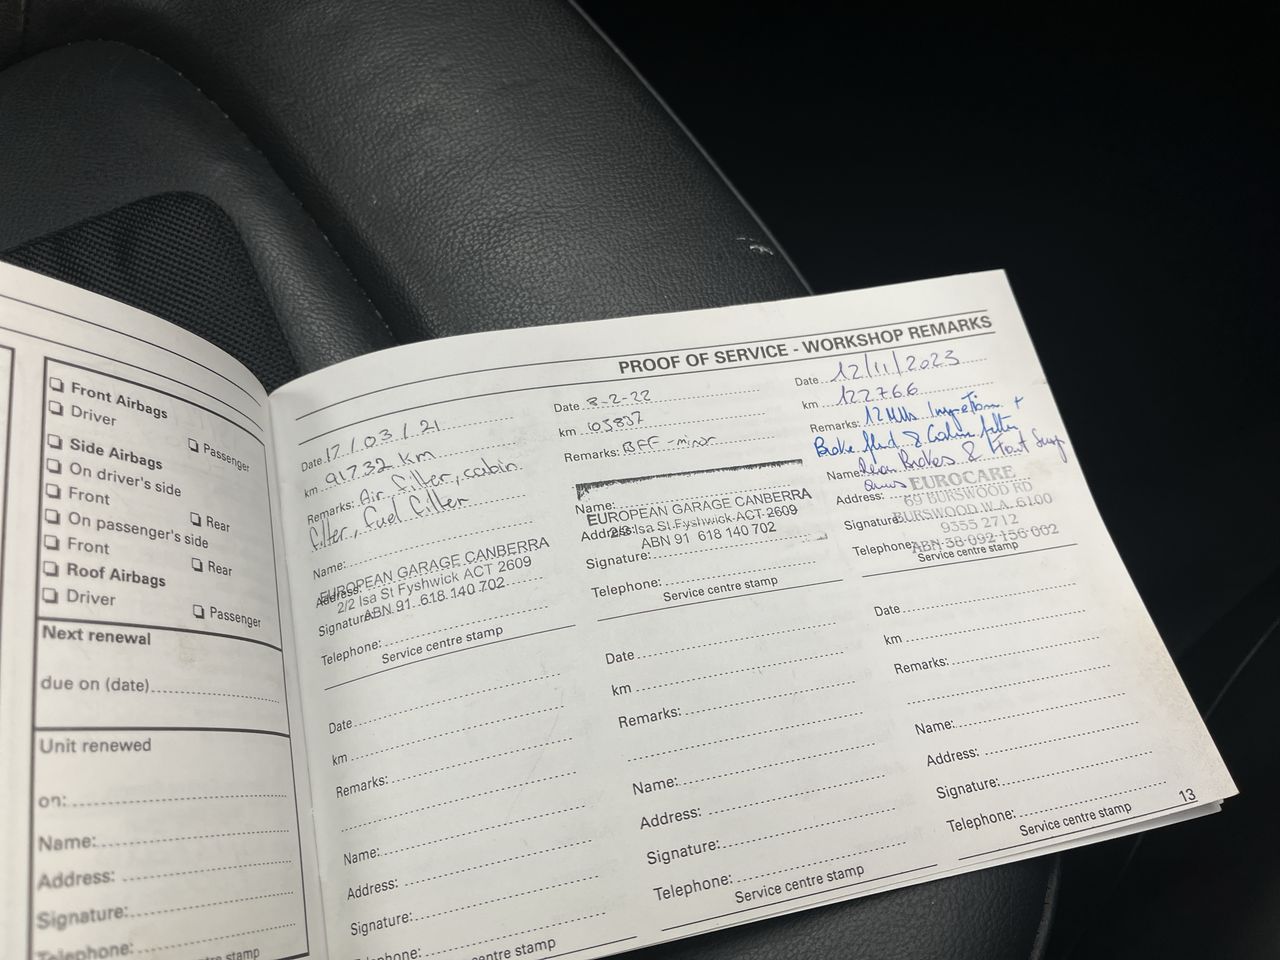 Front Airbags
Driver
Passenger
Side Airbags
On driver's side
Front
Rear
On passenger's side
Front
Rear
Roof Airbags
Driver
Passenger
Next renewal
due on (date)
Unit renewed
on:
Name:
Address:
Signature:
Telephone:
centre stamp
PROOF OF SERVICE - WORKSHOP REMARKS
Date 17/03/21
km 91732 km
Remarks: Air filter, cabin
filter, fuel filter
Name:
EUROPEAN GARAGE CANBERRA
Address: 2/2 Isa St Fyshwick ACT 2609
Signature: ABN 91 618 140 702
Telephone:
Service centre stamp
Date 8-2-22
km 103837
Remarks: BFF -minor
Name:
EUROPEAN GARAGE CANBERRA
Address: 2/2 Isa St Fyshwick ACT 2609
ABN 91 618 140 702
Signature:
Telephone:
Service centre stamp
Date 12/11/2023
km 122766
Remarks: 12 Mths Inspection +
Brake fluid & Cabin filter
Name: Rear Brakes & Front
EUROCARE
Address: 69 BURSWOOD RD
Signature: BURSWOOD W.A. 6100
9355 2712
Telephone: ABN 38 092 156 002
Service centre stamp
Date
km
Remarks:
Name:
Address:
Signature:
Telephone:
Service centre stamp
Date
km
Remarks:
Name:
Address:
Signature:
Telephone:
Service centre stamp
Date
km
Remarks:
Name:
Address:
Signature:
Telephone:
Service centre stamp
13